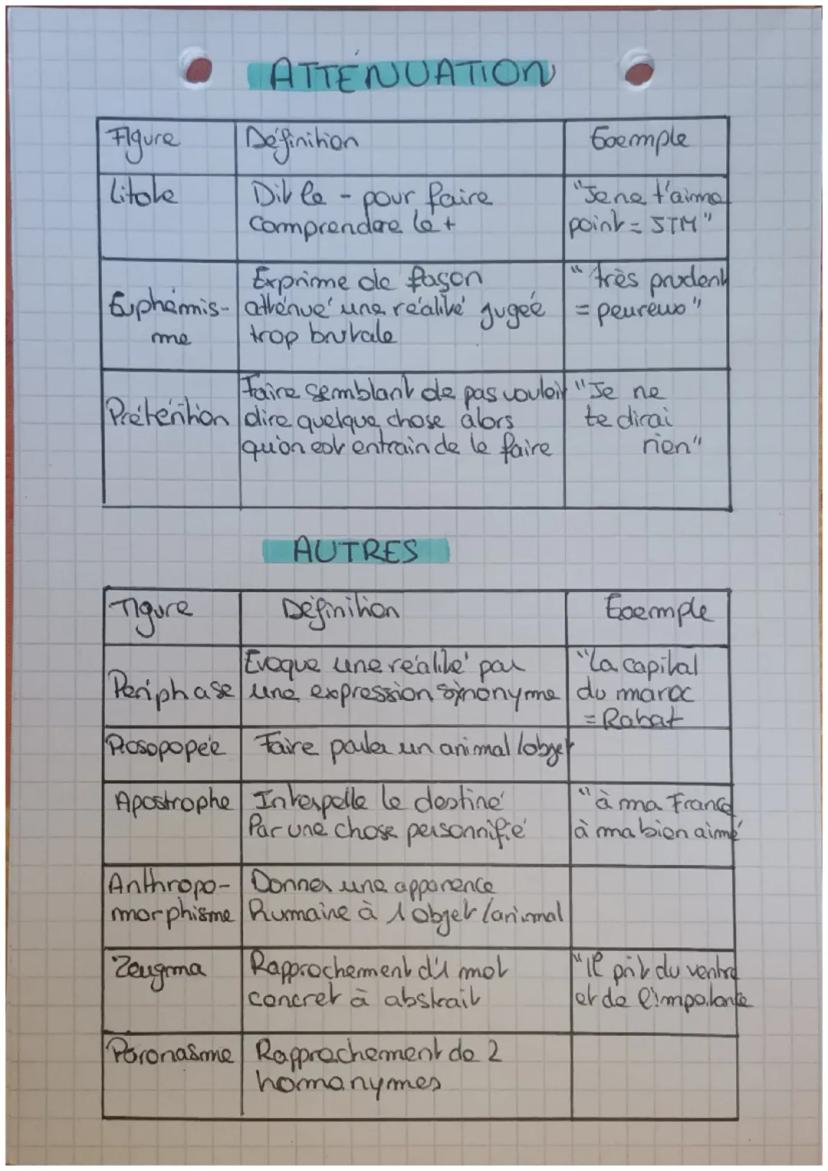 ATTÉNUATION
Figure Définition Exemple
Litote Dit le - pour faire "Je ne t'aime
comprendre le + point = JTM"
Exprime de façon "très prudent
Euphémis- atténué une réalité jugée = peureux"
me trop brutale
Faire semblant de pas vouloir "Je ne
Prétérition dire quelque chose alors te dirai
qu'on est entrain de le faire rien"
AUTRES
Figure Définition Exemple
Evoque une réalité par "La capital
Periphase une expression synonyme du maroc
= Rabat
Prosopopée Faire parler un animal/objet
Apostrophe Interpelle le destiné "à ma France
Par une chose personnifié à ma bien aimé
Anthropo- Donner une apparence
morphisme humaine à l'objet/animal
Zeugma Rapprochement d'1 mot "Il prit du ventre
concret à abstrait et de l'importance
Paronasme Rapprochement de 2
homonymes